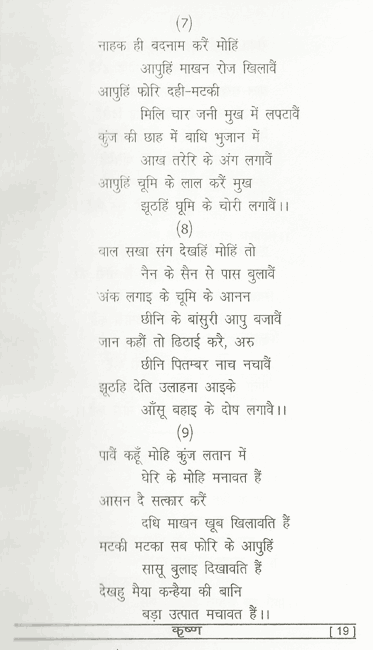 (7)
नाहक ही बदनाम करैं मोहिं
आपुहिं माखन रोज खिलावैं
आपुहिं फोरि दही-मटकी
मिलि चार जनी मुख में लपटावैं
कुंज की छाह में बाधि भुजान में
आख तरेरि के अंग लगावैं
आपुहिं चूमि के लाल करैं मुख
झूठहिं घूमि के चोरी लगावैं।।
(8)
बाल सखा संग देखहिं मोहिं तो
नैन के सैन से पास बुलावैं
अंक लगाइ के चूमि के आनन
छीनि के बांसुरी आपु बजावैं
जान कहौं तो ढिठाई करै, अरु
छीनि पितम्बर नाच नचावैं
झूठहि देति उलाहना आइके
आँसू बहाइ के दोष लगावै।।
(9)
पावैं कहूँ मोहि कुंज लतान में
घेरि के मोहि मनावत हैं
आसन दै सत्कार करैं
दधि माखन खूब खिलावति हैं
मटकी मटका सब फोरि के आपुहिं
सासू बुलाइ दिखावति हैं
देखहु मैया कन्हैया की बानि
बड़ा उत्पात मचावत हैं।।
कृष्ण [ 19 ]